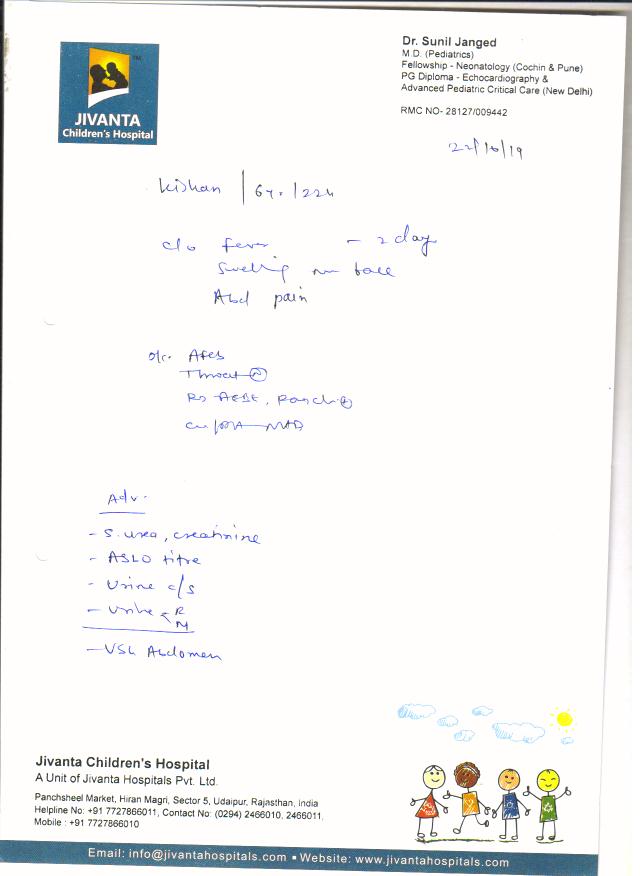 Dr. Sunil Janged
M.D. (Pediatrics)
Fellowship - Neonatology (Cochin & Pune)
PG Diploma - Echocardiography &
Advanced Pediatric Critical Care (New Delhi)
RMC NO- 28127/009442
TM
JIVANTA
Children's Hospital
22/10/19
Kishan | 6 yr.
c/o fever - 2 day
Swelling face
Abd pain
o/e. Afeb
Throat (N)
Rs AEBE,
NAD
Adv.
- S. urea, creatinine
- ASLO titre
- Urine c/s
- Urine < R
M
- USG Abdomen
Jivanta Children's Hospital
A Unit of Jivanta Hospitals Pvt. Ltd.
Panchsheel Market, Hiran Magri, Sector 5, Udaipur, Rajasthan, India
Helpline No: +91 7727866011, Contact No: (0294) 2466010, 2466011,
Mobile : +91 7727866010
Email: info@jivantahospitals.com ▪ Website: www.jivantahospitals.com